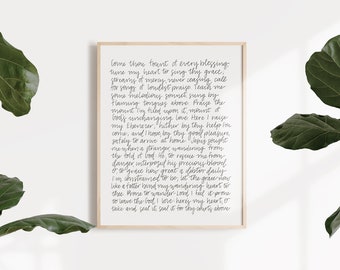 Come thou fount of every blessing
tune my heart to sing thy grace,
streams of mercy never ceasing call
for songs of loudest praise Teach me
some melodious sonnet sung by
flaming tongues above Praise the
mount I'm fixed upon it mount of
God's unchanging love Here I raise
my Ebenezer hither by thy help I've
come, and I hope, by thy good pleasure,
safely to arrive at home Jesus sought
me when a stranger wandering from
the fold of God He, to rescue me from
danger interposed his precious blood
O to grace how great a debtor daily
I'm constrained to be let thy grace now
like a fetter bind my wandering heart to
thee Prone to wander Lord I feel it prone
to leave the God I love here's my heart, O
take and seal it seal it for thy courts above